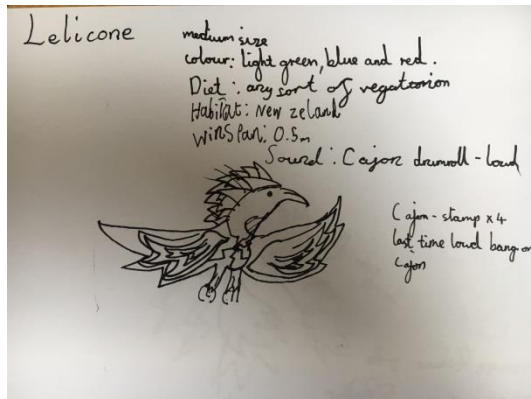 Lelicone
medium size
colour: light green, blue and red.
Diet: any sort of vegatorion
Habitat: New zeland
WinSpan: 0.5m
Sound: Cajon drumroll - loud
Cajon - stamp x4
last time loud bang on
cajon